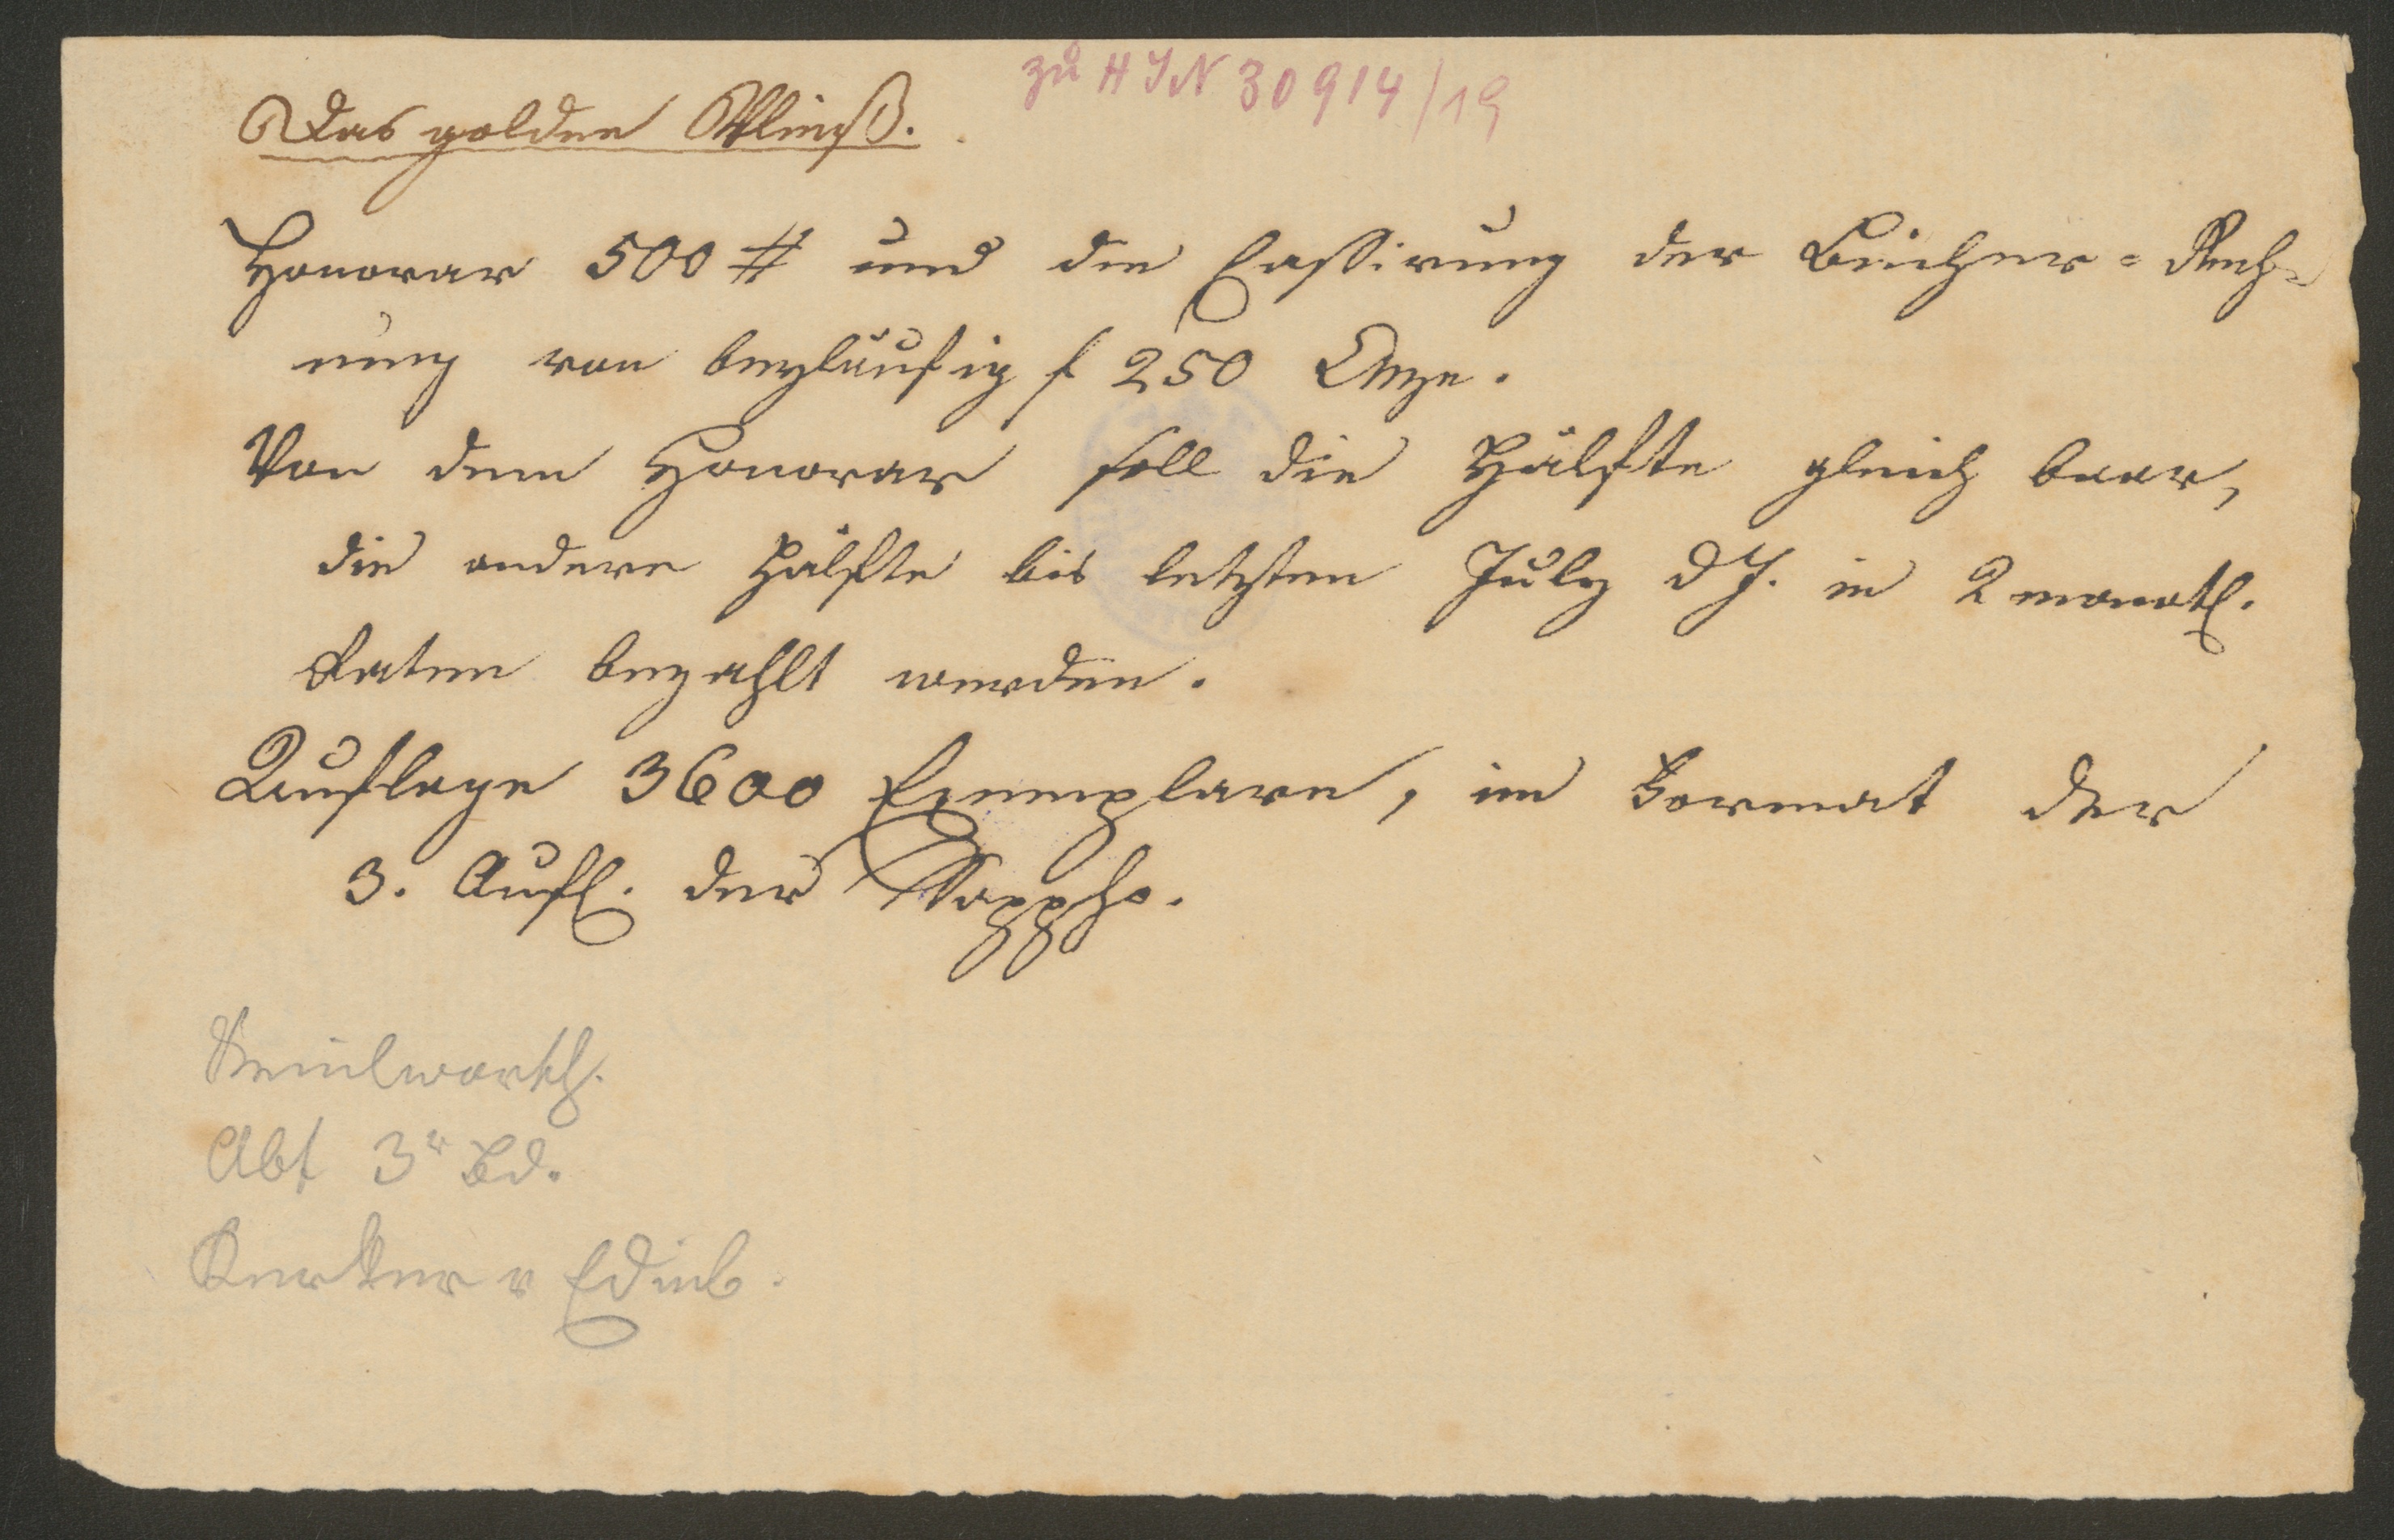 zu HIN 30914/19
Das goldene Vließ.
Honorar 500 # und die Cassirung der Bücher=Rech=
nung von beyläufig f 250 CMze.
Von dem Honorar soll die Hälfte gleich baar,
die andere Hälfte bis letzten July d J. in 2 monatl.
Raten bezahlt werden.
Auflage 3600 Exemplare, im Format der
3. Aufl. der Sappho.
Kenilworth.
Abt 3r Bd.
Kerker v Edinb.